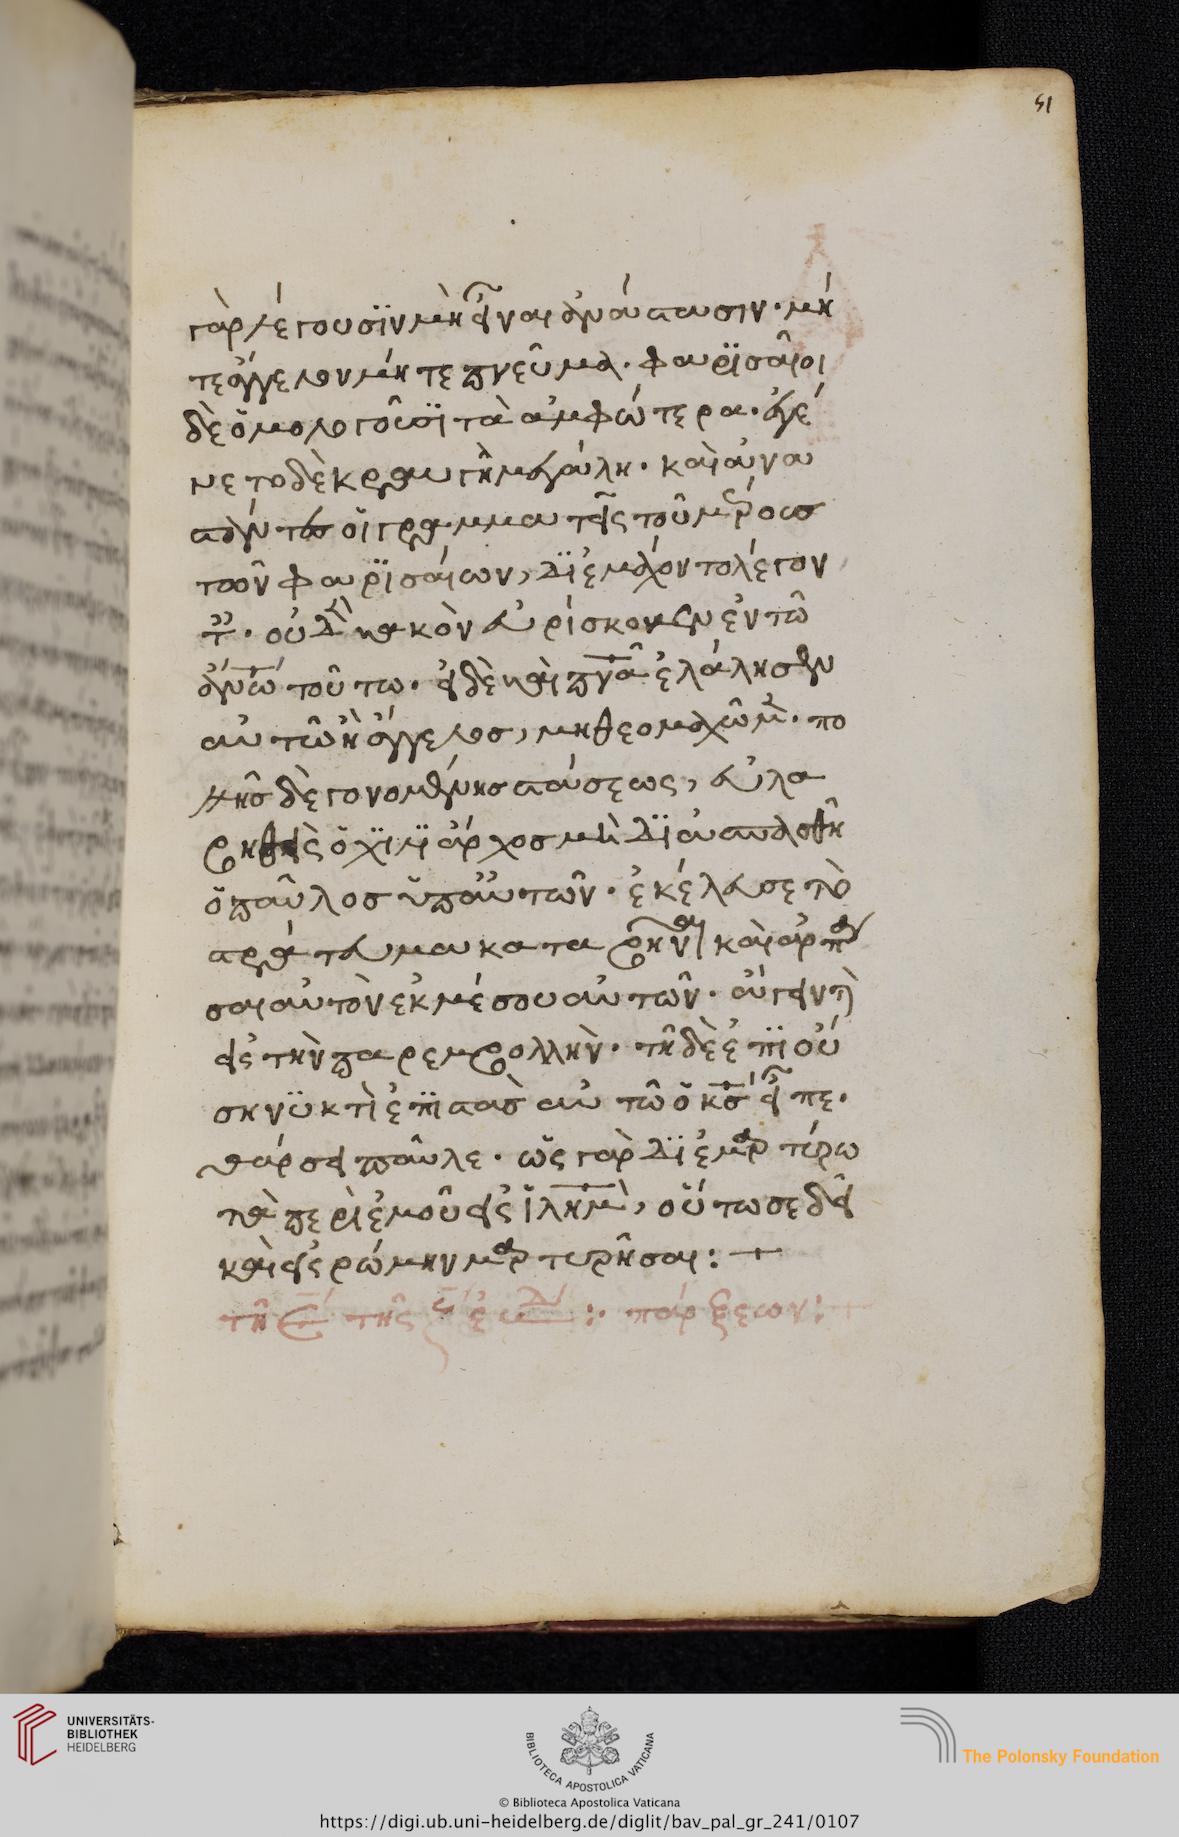 51
γὰρ λέγουσϊν μὴ εἶναι ἀνάστασιν· μή
τε ἄγγελον μήτε πνεῦμα· φαρϊσαῖοι
δὲ ὁμολογοῦσϊ τὰ ἀμφώτερα· ἐγέ
νετο δὲ κραυγὴ μεγάλη· καὶ ἀνα
στάντες οἱ γραμματεῖς τοῦ μέρους
τῶν φαρϊσαίων, δϊεμάχοντο λέγον
τ· οὐδὲν κακὸν εὑρίσκομεν ἐν τῶ
ἀνω τούτω· εἰ δὲ καὶ πνα ἐλάλησεν
αὐτῶ ἢ ἄγγελος, μὴ θεομαχῶμ· πο
λλῆς δὲ γονομένης στάσεως, εὐλα
βηθεὶς ὁ χϊλϊαρχος μὴ δϊασπασθῆ
ὁ παῦλος ὑπ' αὐτῶν· ἐκέλευσε τὸ
στράτευμα καταβῆναι καὶ ἁρπά
σαι αὐτὸν ἐκ μέσου αὐτῶν· ἄγειν τ
εἰς τὴν παρεμβολλὴν· τῆ δὲ ἐπϊού
ση νϋκτὶ ἐπϊστὰς αὐτῶ ὁ κς εἶπε·
θάρσει παῦλε· ὡς γὰρ δϊεμαρτύρω
τὰ περὶ ἐμοῦ εἰς ἵλημ, οὕτω σε δεῖ
καὶ εἰς ρώμην μαρτυρῆσαι: +
UNIVERSITÄTS-
BIBLIOTHEK
HEIDELBERG
BIBLIOTECA APOSTOLICA VATICANA
The Polonsky Foundation
© Biblioteca Apostolica Vaticana
https://digi.ub.uni-heidelberg.de/diglit/bav_pal_gr_241/0107